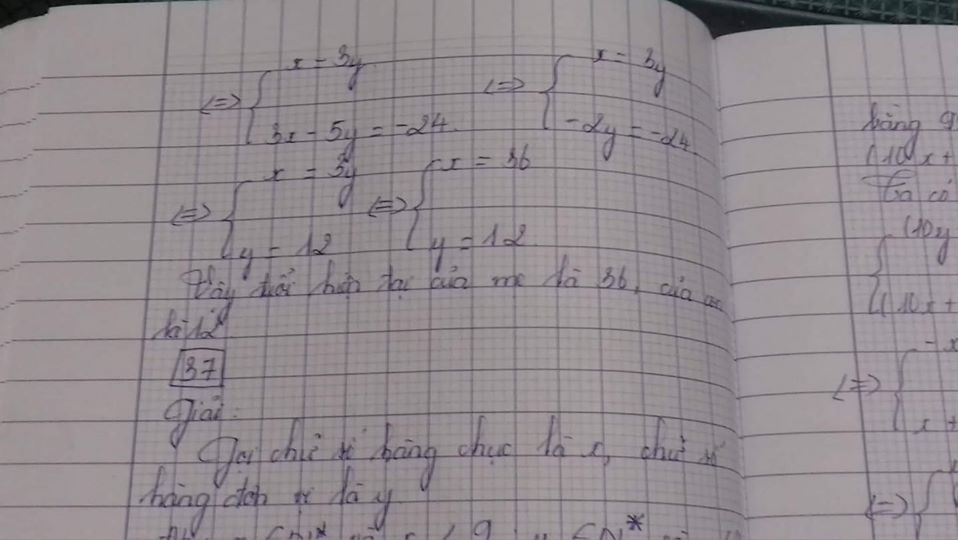 <=> { x = 3y <=> { x = 3y
3x - 5y = -24 -2y = -24
<=> { x = 3y <=> { x = 36
y = 12 y = 12
Vậy tuổi hiện tại của mẹ là 36, của con
là 12
37
Giải:
Gọi chữ số hàng chục là x, chữ số
hàng đơn vị là y
bằng 9
(10x +
Ta có
{ (10y
(10x +
<=> { -x
x +
<=> {